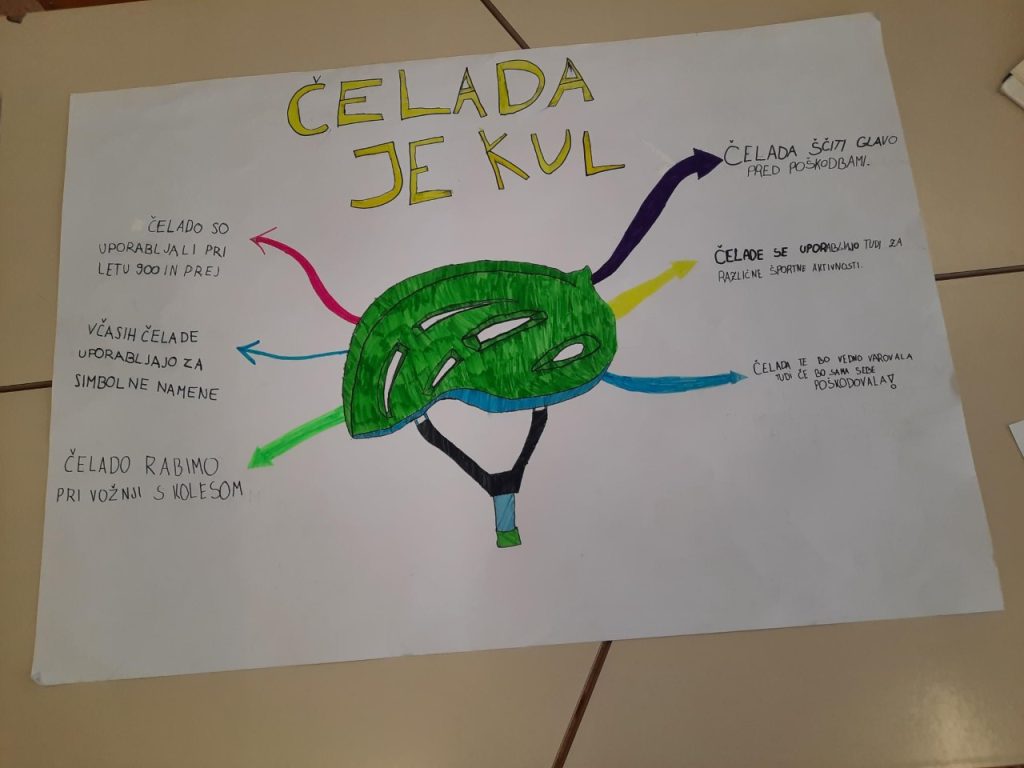 ČELADA
JE KUL
ČELADO SO
UPORABLJALI PRI
LETU 900 IN PREJ
VČASIH ČELADE
UPORABLJAJO ZA
SIMBOLNE NAMENE
ČELADO RABIMO
PRI VOŽNJI S KOLESOM
ČELADA ŠČITI GLAVO
PRED POŠKODBAMI.
ČELADE SE UPORABLJAJO TUDI ZA
RAZLIČNE ŠPORTNE AKTIVNOSTI.
ČELADA TE BO VEDNO VAROVALA
TUDI ČE BO SAMA SEBE
POŠKODOVALA!